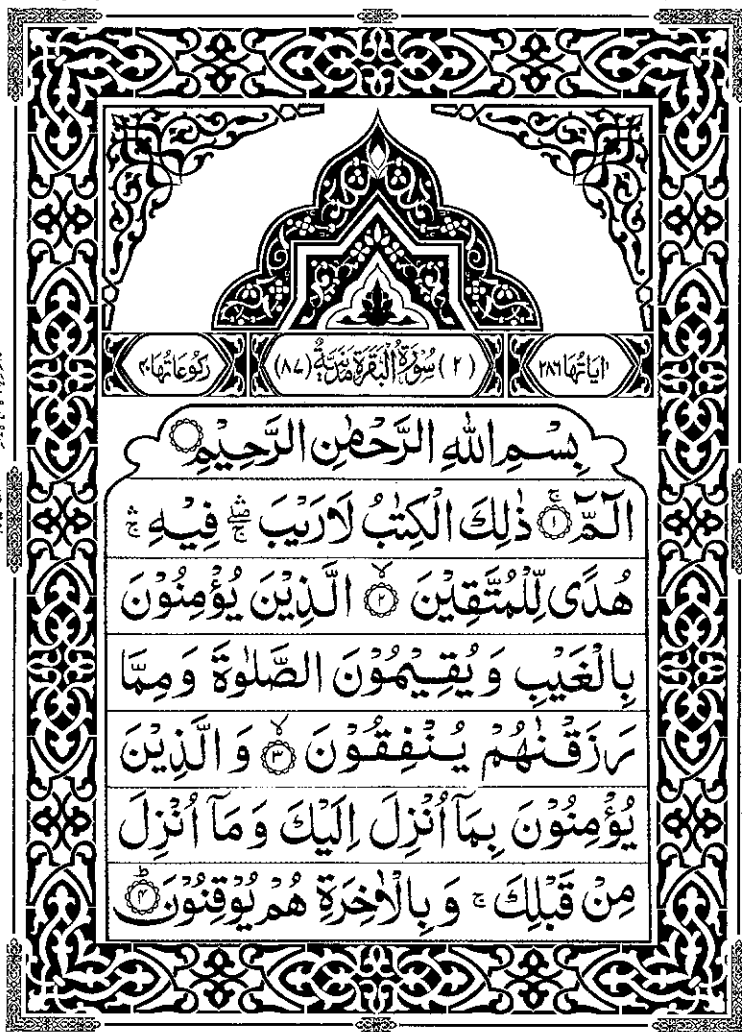 اٰيَاتُهَا ٢٨٦
(٢) سُوْرَةُ الْبَقَرَةِ مَدَنِيَّةٌ (٨٧)
رُكُوْعَاتُهَا ٤٠
بِسْمِ اللهِ الرَّحْمٰنِ الرَّحِيْمِ
الٓمّٓ ۚ ﴿١﴾ ذٰلِكَ الْكِتٰبُ لَا رَيْبَ ۛۚ فِيْهِ ۛۚ
هُدًى لِّلْمُتَّقِيْنَ ۙ ﴿٢﴾ الَّذِيْنَ يُؤْمِنُوْنَ
بِالْغَيْبِ وَيُقِيْمُوْنَ الصَّلٰوةَ وَمِمَّا
رَزَقْنٰهُمْ يُنْفِقُوْنَ ۙ ﴿٣﴾ وَالَّذِيْنَ
يُؤْمِنُوْنَ بِمَآ اُنْزِلَ اِلَيْكَ وَمَآ اُنْزِلَ
مِنْ قَبْلِكَ ۚ وَبِالْاٰخِرَةِ هُمْ يُوْقِنُوْنَ ؕ ﴿٤﴾